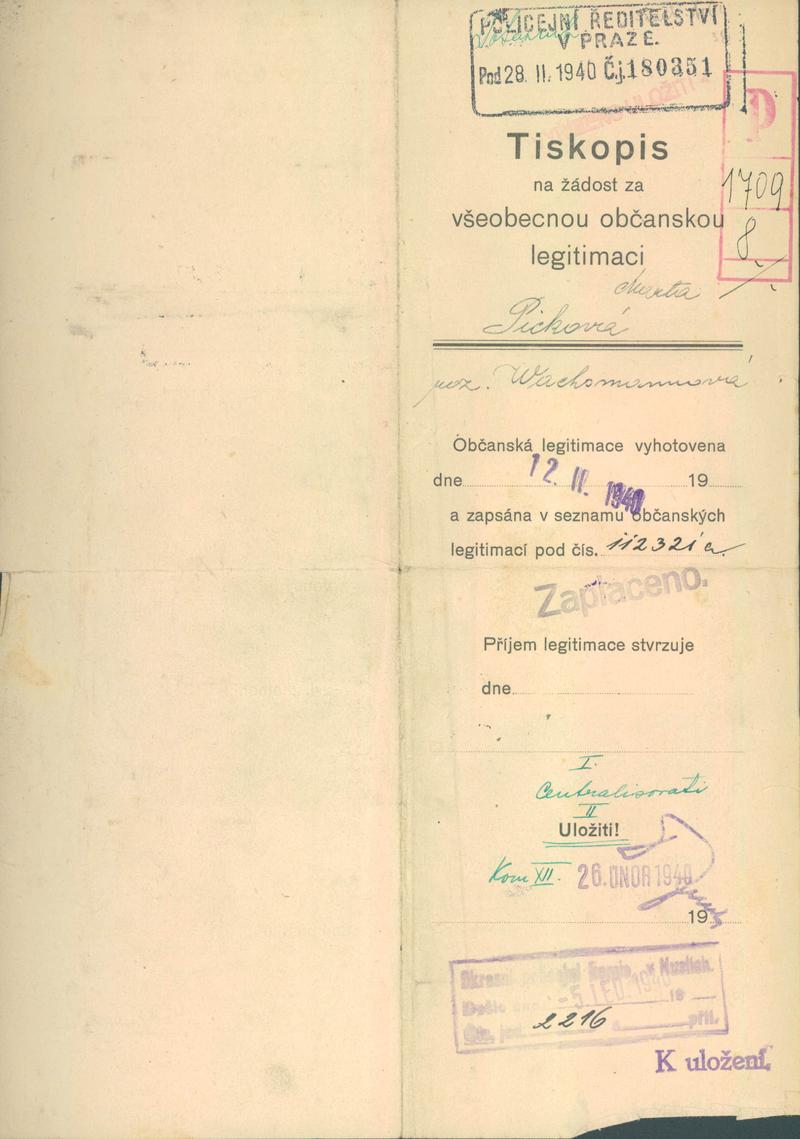 POLICEJNÍ ŘEDITELSTVÍ
V PRAZE.
Pod 28. II. 1940 Č.j. 180351
P
1709
8
Tiskopis
na žádost za
všeobecnou občanskou
legitimaci
Marta
Picková
roz. Wachsmannová
Občanská legitimace vyhotovena
dne 12. II. 1940 19
a zapsána v seznamu občanských
legitimací pod čís. 112321 a
Zaplaceno.
Příjem legitimace stvrzuje
dne
I.
Centralisovati
II
Uložiti!
Kom XII. 26. ÚNOR 1940
19
Došlo dne -5. LED. 1940 19
Čís. jed. 2216 příl.
K uložení.